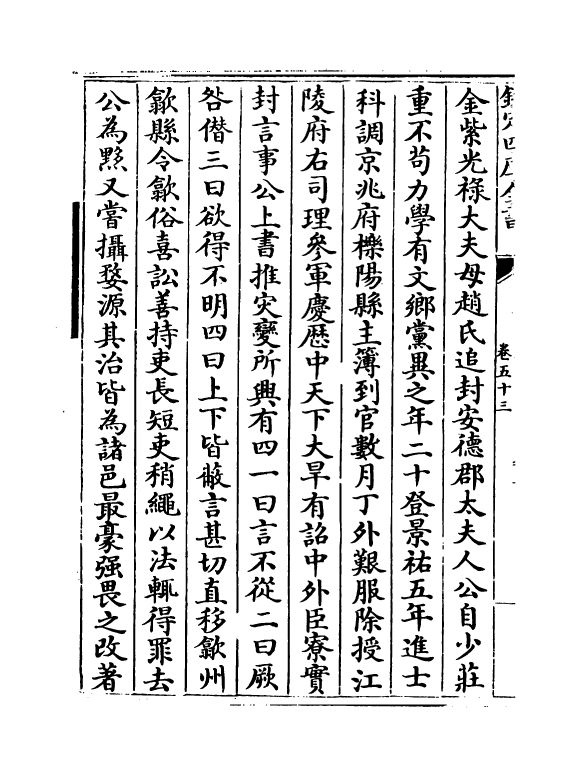 欽定四庫全書
卷五十三
金紫光祿大夫母趙氏追封安德郡太夫人公自少莊
重不苟力學有文鄉黨異之年二十登景祐五年進士
科調京兆府櫟陽縣主簿到官數月丁外艱服除授江
陵府右司理參軍慶歴中天下大旱有詔中外臣寮實
封言事公上書推灾變所興有四一曰言不從二曰厥
咎僭三曰欲得不明四曰上下皆蔽言甚切直移歙州
歙縣令歙俗喜訟善持吏長短吏稍繩以法輒得罪去
公為黟又嘗攝婺源其治皆為諸邑最豪强畏之改著